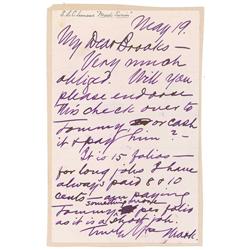 S. L. Clemens "Mark Twain"
May 19.
My Dear Brooks —
Very much
obliged. Will you
please endorse
this check over to
Tommy or cash
it & pay him?
It is 15 folios —
for long folios I have
always paid 8 & 10
cents — am paying
something more
Tommy per folio
as it is a short job.
Truly Yrs
Mark.